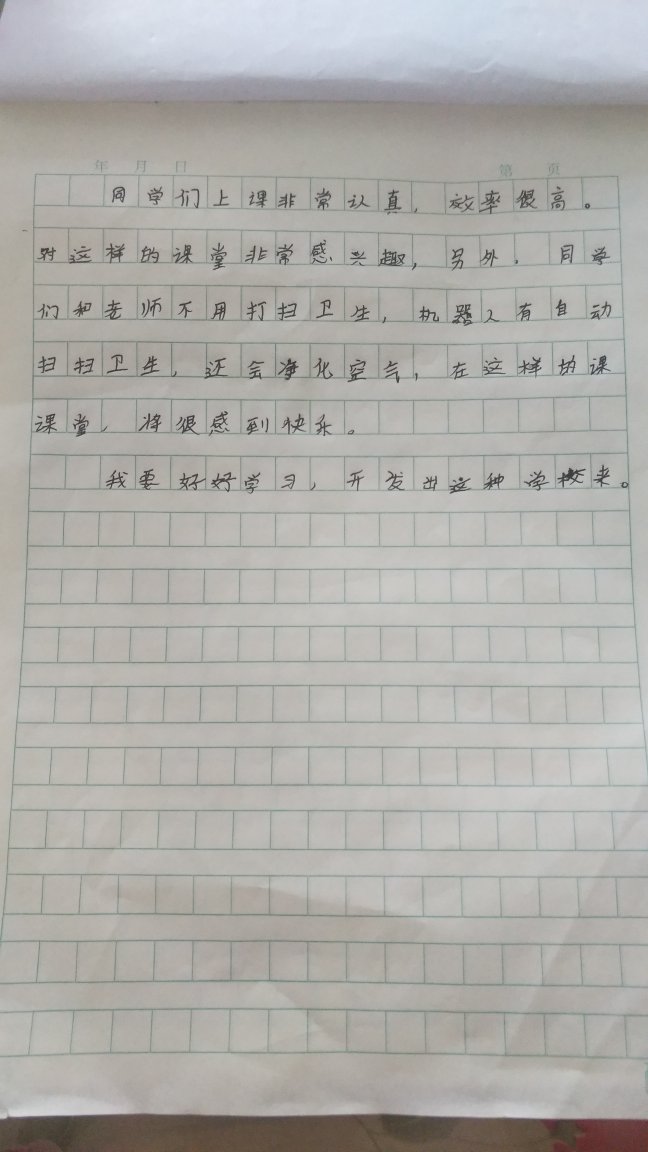 年 月 日 第 页
同学们上课非常认真，效率很高。
对这样的课堂非常感兴趣，另外，同学
们和老师不用打扫卫生，机器人有自动
扫扫卫生，还会净化空气，在这样的课
课堂，将很感到快乐。
我要好好学习，开发出这种学校来。